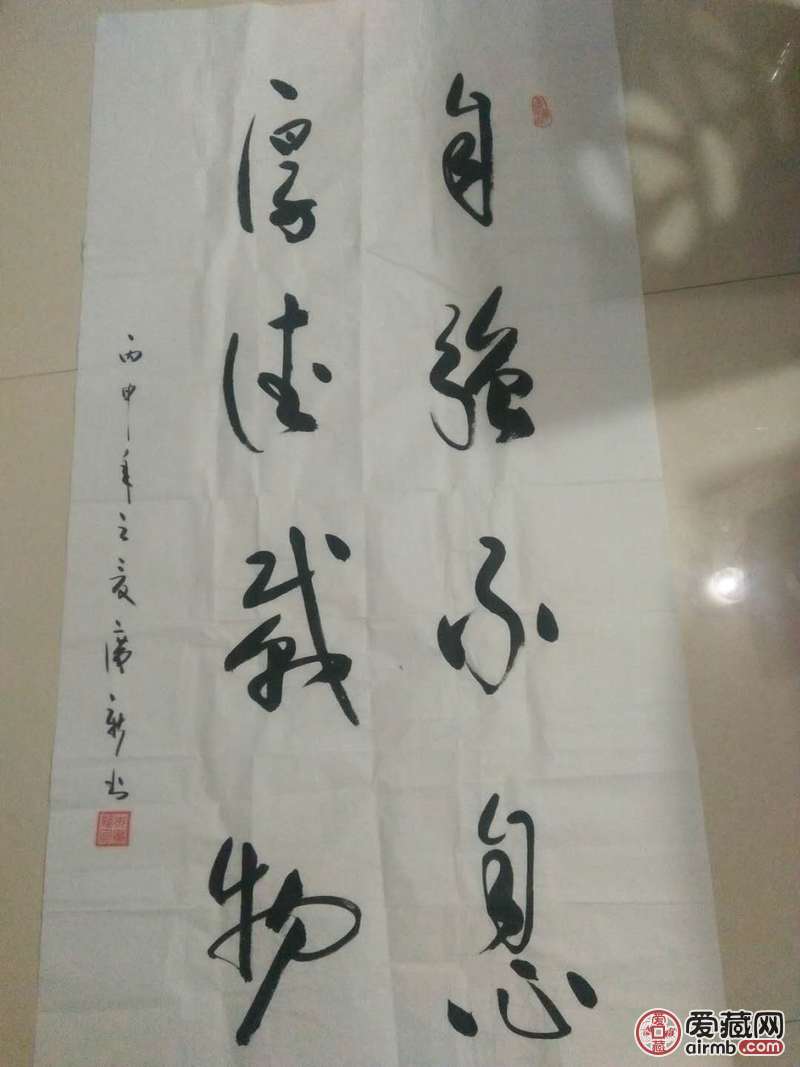 自強不息
厚德載物
丙申年之夏广新书
爱藏网
airmb.com